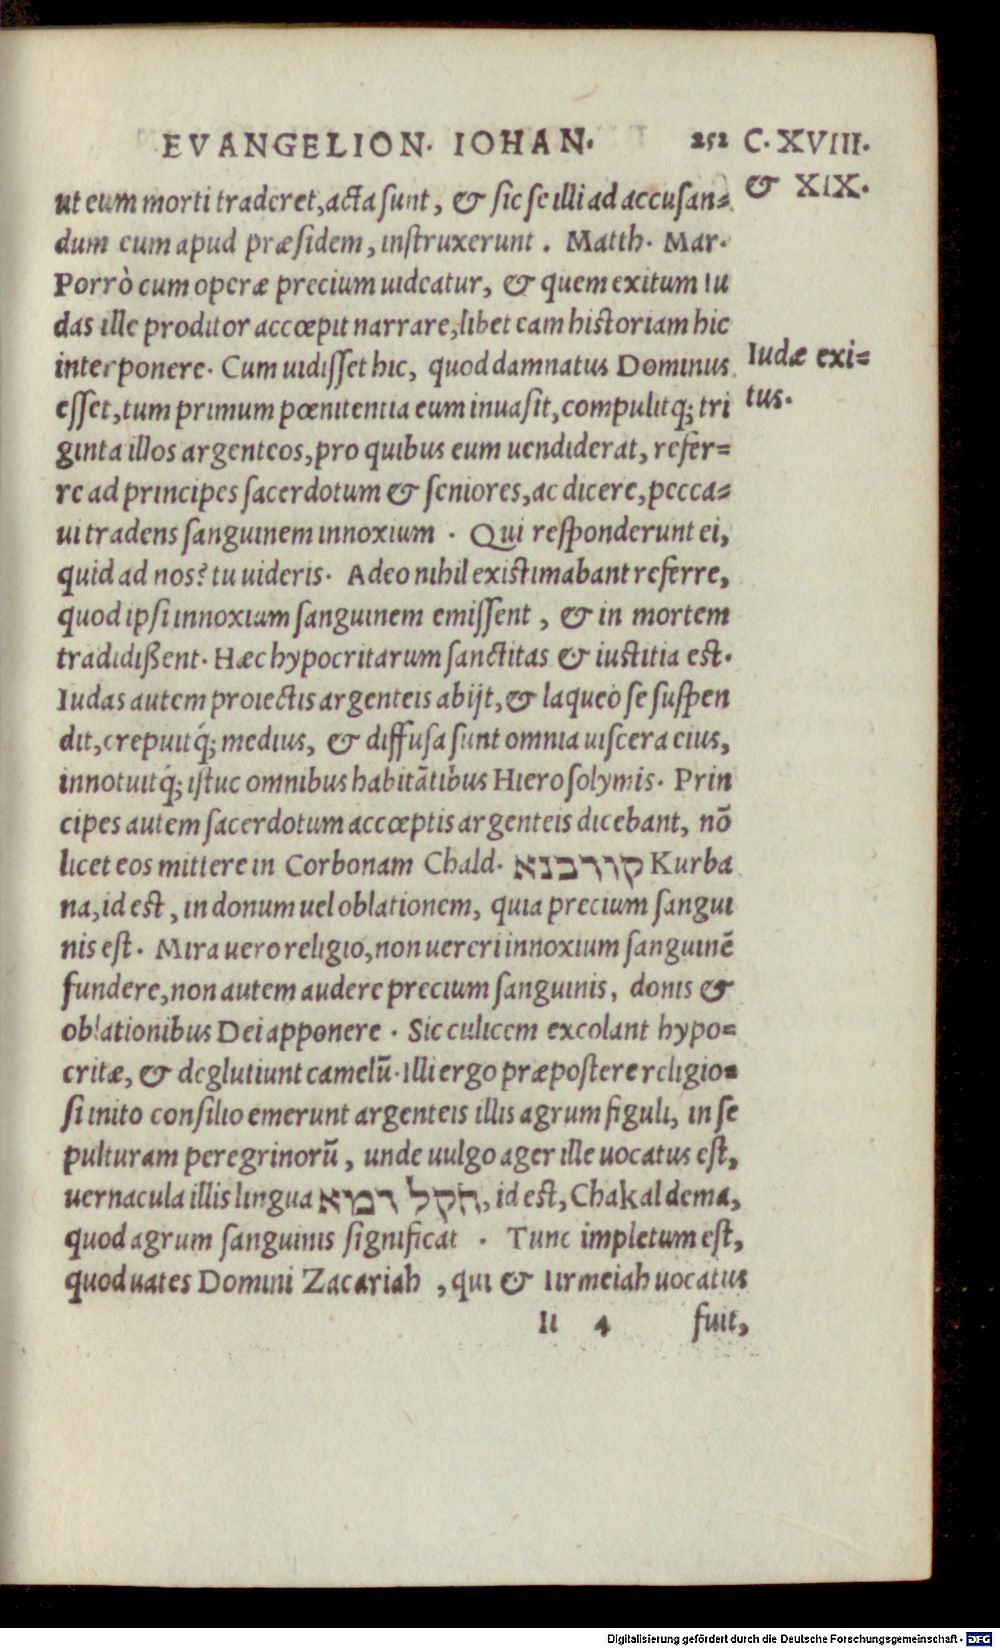 EVANGELION. IOHAN. 252 C. XVIII.
& XIX.
ut eum morti traderet, acta sunt, & sic se illi ad accusan=
dum eum apud præsidem, instruxerunt. Matth. Mar.
Porrò cum operæ precium uideatur, & quem exitum Iu
das ille proditor accœpit narrare, libet eam historiam hic
interponere. Cum uidisset hic, quod damnatus Dominus
Iudæ exi=
esset, tum primum pœnitentia eum inuasit, compulitq́; tri
tus.
ginta illos argenteos, pro quibus eum uendiderat, refer=
re ad principes sacerdotum & seniores, ac dicere, pecca=
ui tradens sanguinem innoxium. Qui responderunt ei,
quid ad nos? tu uideris. Adeo nihil existimabant referre,
quod ipsi innoxium sanguinem emissent, & in mortem
tradidißent. Hæc hypocritarum sanctitas & iustitia est.
Iudas autem proiectis argenteis abijt, & laqueo se suspen
dit, crepuitq́; medius, & diffusa sunt omnia uiscera eius,
innotuitq́; istuc omnibus habitātibus Hierosolymis. Prin
cipes autem sacerdotum accœptis argenteis dicebant, nō
licet eos mittere in Corbonam Chald. קורבנא Kurba
na, id est, in donum uel oblationem, quia precium sangui
nis est. Mira uero religio, non uereri innoxium sanguinē
fundere, non autem audere precium sanguinis, donis &
oblationibus Dei apponere. Sic culicem excolant hypo=
critæ, & deglutiunt camelū. Illi ergo præpostere religio=
si inito consilio emerunt argenteis illis agrum figuli, in se
pulturam peregrinorū, unde uulgo ager ille uocatus est,
uernacula illis lingua חקל דמא, id est, Chakal dema,
quod agrum sanguinis significat. Tunc impletum est,
quod uates Domini Zacariah, qui & Iirmeiah uocatus
Ii 4 fuit,
Digitalisierung gefördert durch die Deutsche Forschungsgemeinschaft - DFG